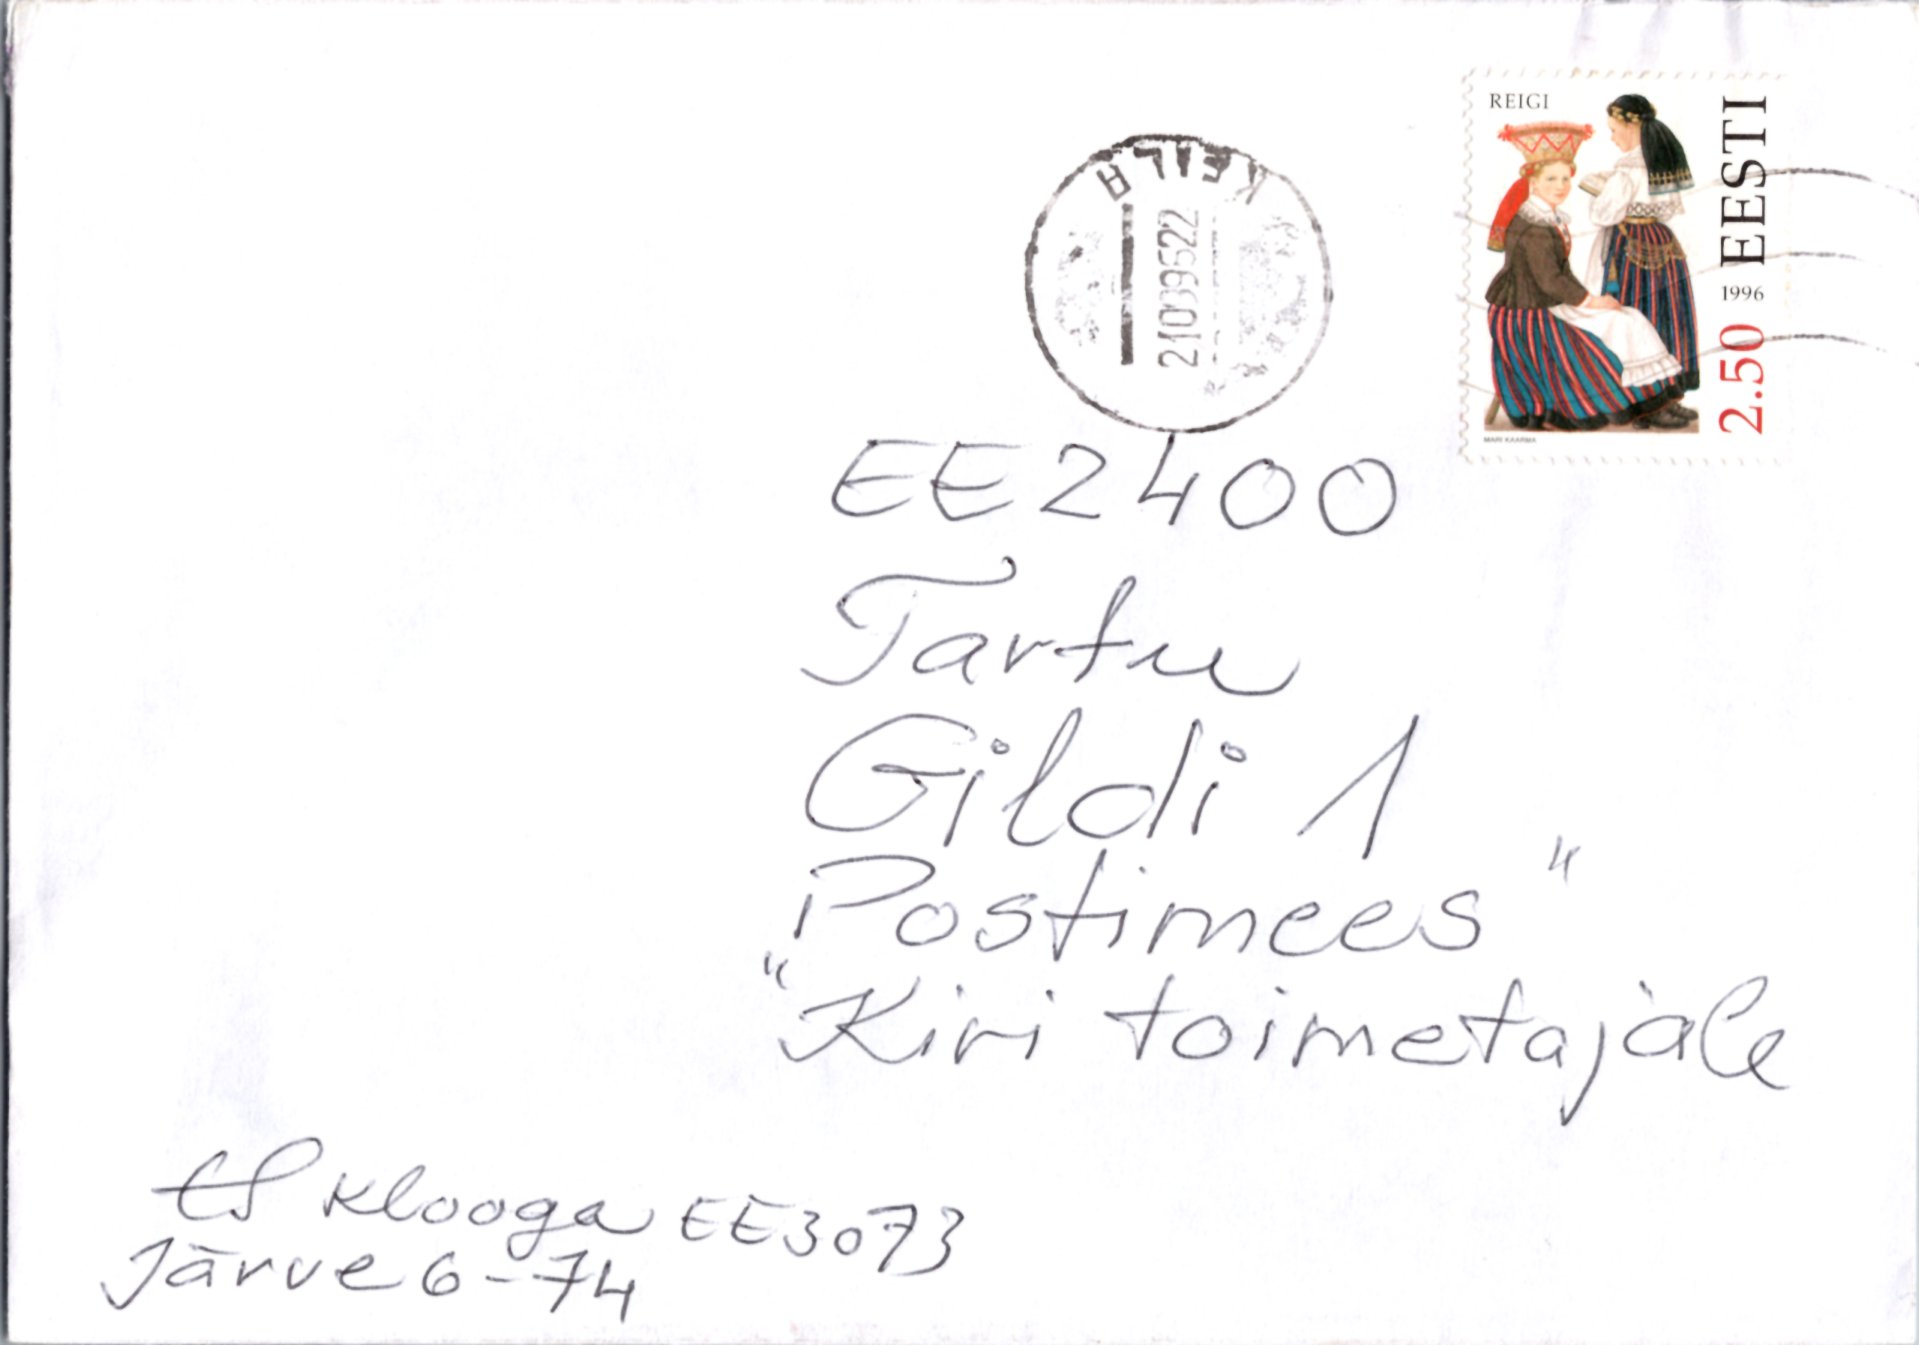 REIGI
EESTI
1996
2.50
MARI KAARMA
KEILA
EE2400
Tartu
Gildi 1
Postimees"
"Kiri toimetajale
Klooga EE3073
Järve 6-74